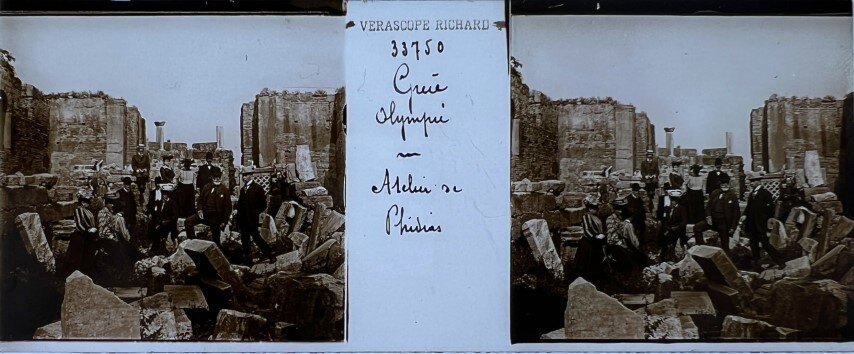 VERASCOPE RICHARD
33750
Grèce
Olympie
Atelier de
Phidias